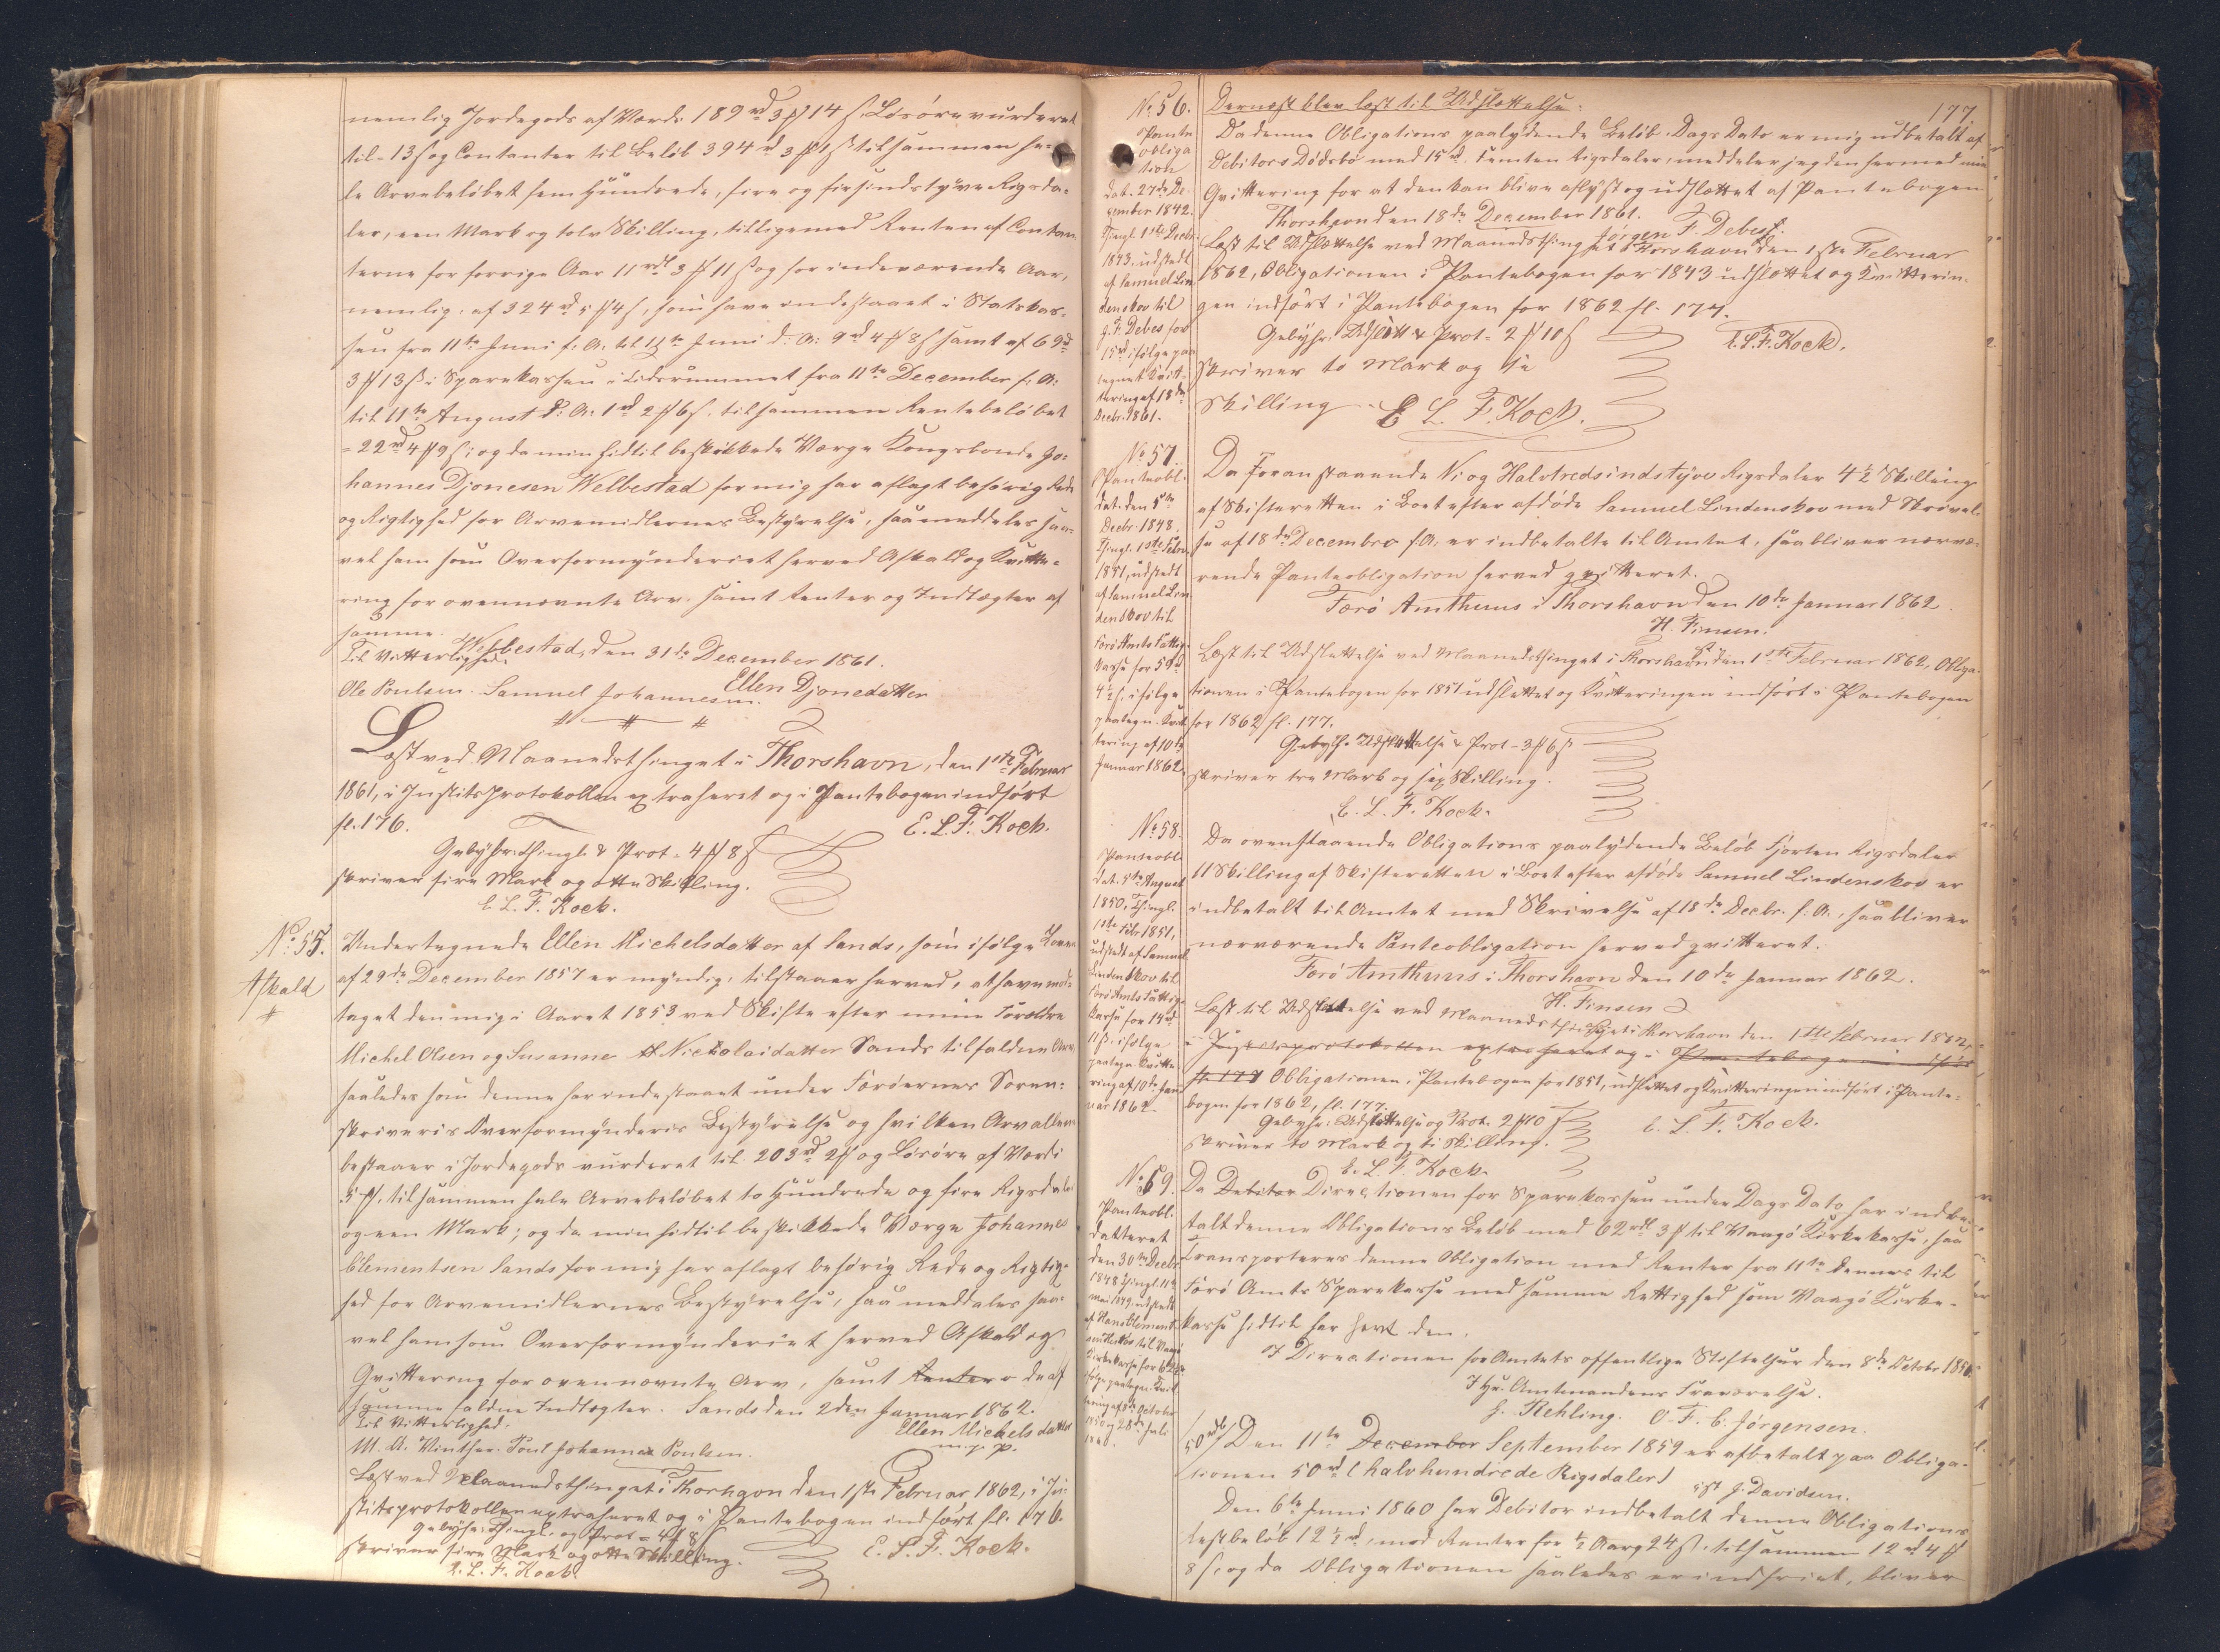 nemlig Jordegods af Værdi 189 rd 3 ℔ 14 ß. Løsøre vurderet
til - 13 ß og Contanter til Beløb 394 rd 3 ℔ 1 ß tilsammen he-
le Arvebeløbet fem Hundrede, fire og firsindstyve Rigsda-
ler, een Mark og tolv Skilling, tilligemed Renten af Contan-
terne for forrige Aar 11 rdl 3 ℔ 11 ß og for indeværende Aar,
nemlig: af 324 rd 5 ℔ 4 ß, som have indestaaet i Statskas-
sen fra 11te Juni f. A. til 11te Juni d. A: 9 rd 4 ℔ 8 ß samt af 69 rd
3 ℔ 13 ß i Sparekassen i Tidsrummet fra 11te December f. A:
til 11te August d. A: 1 rd 2 ℔ 6 ß. tilsammen Rentebeløbet
= 22 rd 4 ℔ 9 ß; og da min hidtil beskikkede Værge Kongsbonde Jo-
hannes Djonesen Welbestad for mig har aflagt behørig Rede
og Rigtighed for Arvemidlernes Bestyrelse, saa meddeles saa-
vel ham som Overformynderiet herved Afkald og Kvitte-
ring for ovennævnte Arv samt Renter og Indtægter af
samme.
Welbestad, den 31te December 1861.
Til Vitterlighed.
Ellen Djonedatter
Ole Poulsen. Samuel Johannesen.
Læst ved Maanedsthinget i Thorshavn, den 1ste Februar
1861, i Justitsprotokollen extraheret og i Pantebogen indført
fl. 176.
E. L. F. Koch.
Gebyhr: Thingl. & Prot - 4 ℔ 8 ß
skriver fire Mark og otte Skilling.
E. L. F. Koch.
No 55.
Afkald
Undertegnede Ellen Michelsdatter af Sands, som ifølge Loven
af 29de December 1857 er myndig, tilstaaer herved, at have mod-
taget den mig i Aaret 1853 ved Skifte efter mine Forældre
Michel Olsen og Susanne Nickolaidatter Sands tilfaldne Arv,
saaledes som denne har indestaaet under Færøernes Soren-
skriveris Overformynderis Bestyrelse og hvilken Arv allene
bestaaer i Jordegods vurderet til 203 rd 2 ℔ og Løsøre af Værdi
5 ℔, tilsammen hele Arvebeløbet to Hundrede og fire Rigsdaler
og een Mark; og da min hidtil beskikkede Værge Johannes
Clementsen Sands for mig har aflagt behørig Rede og Rigtig-
hed for Arvemidlernes Bestyrelse, saa meddeles saa-
vel ham som Overformynderiet herved Afkald og
Qvittering for ovennævnte Arv, samt Renter o de af
samme faldne Indtægter. Sands den 2den Januar 1862.
Til Vitterlighed.
Ellen Michelsdatter
m. p.
M. A. Winther. Poul Johannes Poulsen.
Læst ved Maanedsthinget i Thorshavn den 1ste Februar 1862, i Ju-
stitsprotokollen extraheret og i Pantebogen indført fl. 176.
Gebyhr: Thingl. og Prot = 4 ℔ 8 ß
skriver fire Mark og otte Skilling.
E. L. F. Koch.
E. L. F. Koch.
177.
No 56.
Pante
obliga
tion
dat. 27de De-
cember 1842.
Thingl. 1ste Decbr.
1843, udstedt
af Samuel Lin
denskov til
J. F. Debes for
15 rd ifølge paa
tegnet Kvit-
tering af 18de
Decbr. 1861.
Dernæst blev læst til Udslettelse:
Da denne Obligations paalydende Beløb Dags Dato er mig udbetalt af
Debitors Dødsbo med 15 rd. femten Rigsdaler, meddeler jeg den hermed min
Qvittering for at den kan blive aflyst og udslettet af Pantebogen
Thorshavn den 18de December 1861.
Jørgen F. Debes.
Læst til Udslettelse ved Maanedsthinget i Thorshavn den 1ste Februar
1862, Obligationen i Pantebogen for 1843 udslettet og Kvitterin-
gen indført i Pantebogen for 1862 fl. 177.
Gebyhr. Udslett & Prot = 2 ℔ 10 ß
E. L. F. Koch.
skriver to Mark og ti
Skilling - E. L. F. Koch.
No 57.
Panteobl.
dat. den 5te
Decbr. 1848.
Thingl. 1ste Febr.
1851, udstedt
af Samuel Lin
denskov til
Færø Amts Fattig-
kasse for 59 rd
4½ ß, ifølge
paategn. Kvit
tering af 10de
Januar 1862.
Da Foranstaaende Ni og Halvtredsindstyve Rigsdaler 4½ Skilling
af Skifteretten i Boet efter afdøde Samuel Lindenskov med Skrivel-
se af 18de Decembro f. A. er indbetalte til Amtet, saa bliver nærvæ-
rende Panteobligation herved qvitteret.
Færø Amthuus i Thorshavn den 10de Januar 1862.
H. Finsen.
Læst til Udslettelse ved Maanedsthinget i Thorshavn den 1ste Februar 1862, Obliga-
tionen i Pantebogen for 1851 udslettet og Kvitteringen indført i Pantebogen
for 1862 fl. 177.
Gebyhr Udslettelse & Prot - 3 ℔ 6 ß
skriver tre Mark og sex Skilling.
E. L. F. Koch.
No 58.
Panteobl.
dat. 5te August
1850, Thingl.
1ste Febr 1851,
udstedt af Samuel
Lindenskov til
Færø Amts Fattig-
kasse for 14 rd
11 ß. ifølge
paategn. Kvitte
ring af 10de Jan
uar 1862.
Da ovenstaaende Obligations paalydende Beløb Fjorten Rigsdaler
11 Skilling af Skifteretten i Boet efter afdøde Samuel Lindenskov er
indbetalt til Amtet med Skrivelse af 18de Decbr. f. A., saa bliver
nærværende Panteobligation herved qvitteret.
Færø Amthuus i Thorshavn den 10de Januar 1862.
H. Finsen
Læst til Udslettelse ved Maanedsthinget i Thorshavn den 1ste Februar 1862,
i Justitsprotokollen extraheret og i Pantebogen indført
fl. 177 Obligationen i Pantebogen for 1851, udslettet og Kvitteringen indført i Pante-
bogen for 1862, fl. 177.
Gebyhr: Udslettelse og Prot. 2 ℔ 10 ß
E. L. F. Koch.
skriver to Mark og ti Skilling.
E. L. F. Koch.
No 59.
Panteobl.
datteret
den 30te Decbr.
1848 Thingl. 11te
Mai 1849, udstedt
af Hans Clement
sen til Vaagø
Kirkekasse for 62½ rd
ifølge paategn. Kvit
tering af 8de October
1850 og 28de Juli
Da Debitor Directionen for Sparekassen under Dags Dato har indbe-
talt denne Obligations Beløb med 62 rdl 3 ℔ til Vaagø Kirkekasse, saa
Transporteres denne Obligation med Renter fra 11te dennes til
Færø Amts Sparekasse med samme Rettighed som Vaagø Kirke-
kasse hidtil har havt den.
I Directionen for Amtets offentlige Stiftelser den 8de Octobr 1850.
I Hr. Amtmandens Fraværelse.
J. Rehling. O. F. C. Jørgensen.
/50 rd/ Den 11te December September 1859 er afbetalt paa Obliga-
tionen 50 rd (halvhundrede Rigsdaler)
J. Davidsen.
Den 6te Juni 1860 har Debitor indbetalt denne Obligations
Restbeløb 12½ rd, med Renter for ½ Aar 24 ß. tilsammen 12 rd 4 ℔
8 ß; og da Obligationen saaledes er indfriet, bliver